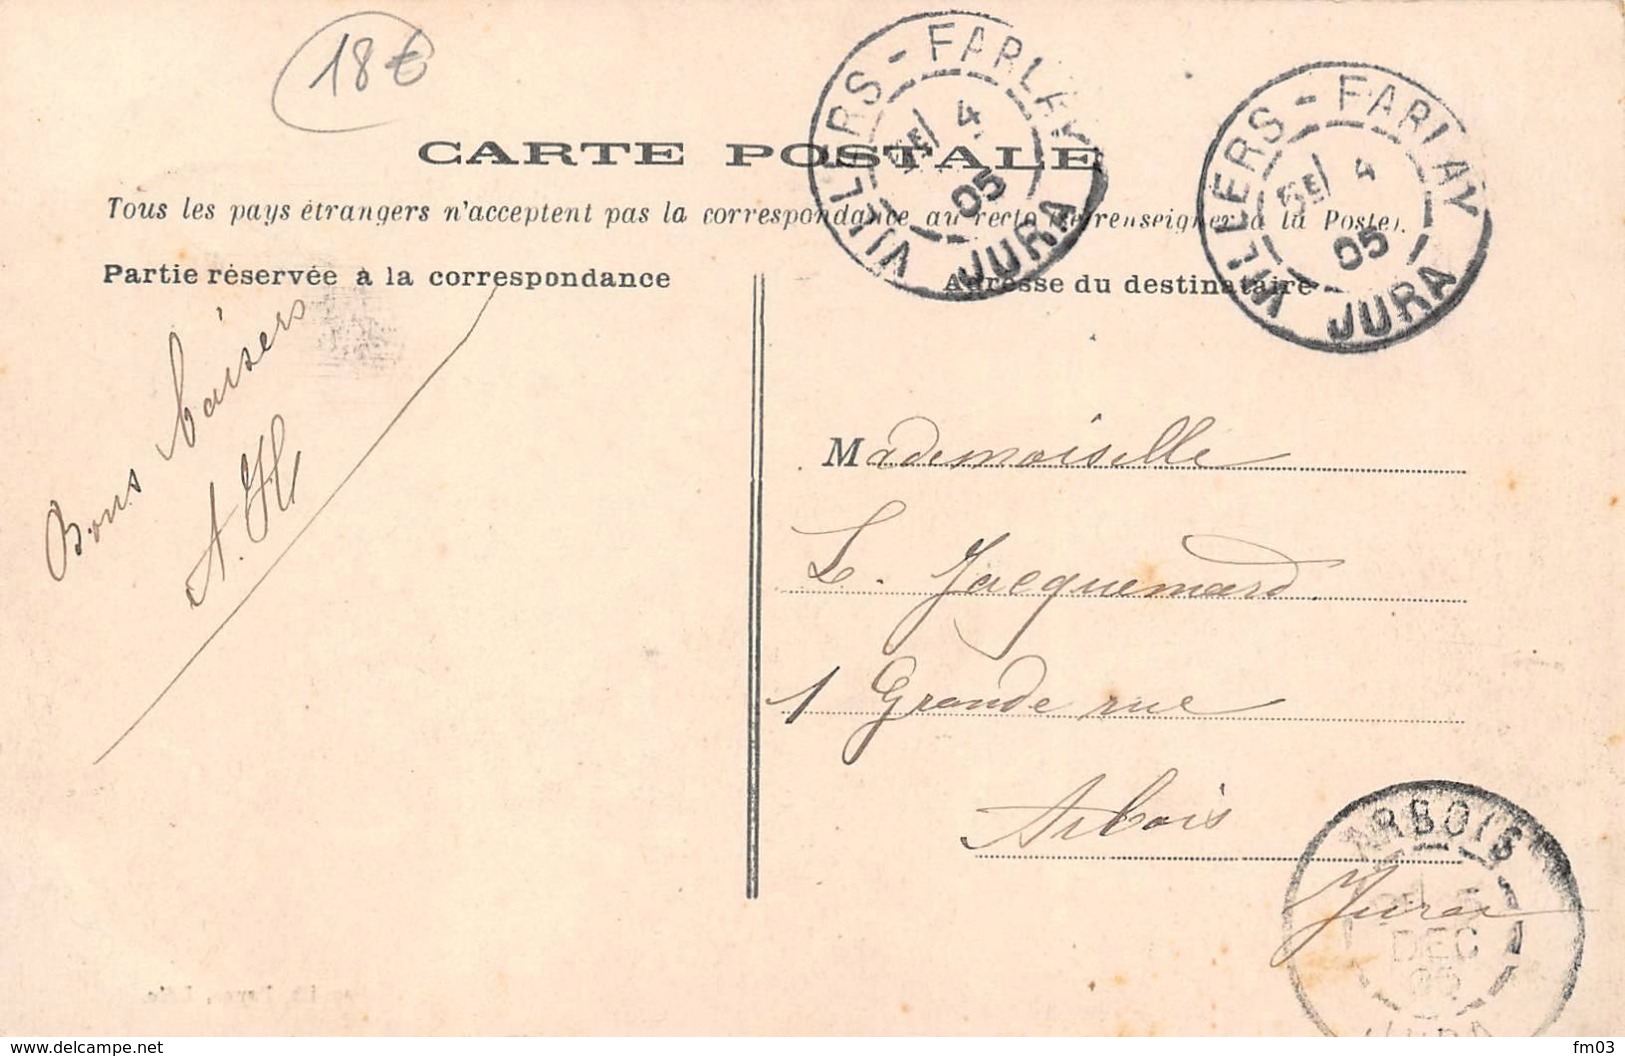 18€
VILLERS-FARLAY
4
05
JURA
VILLERS-FARLAY
4
05
JURA
CARTE POSTALE
Tous les pays étrangers n'acceptent pas la correspondance au recto (se renseigner à la Poste).
Partie réservée à la correspondance
Adresse du destinataire
Bons baisers
A. H
Mademoiselle
L. Jacquemard
1 Grande rue
Arbois
Jura
ARBOIS
5
DEC
05
JURA
www.delcampe.net
fm03